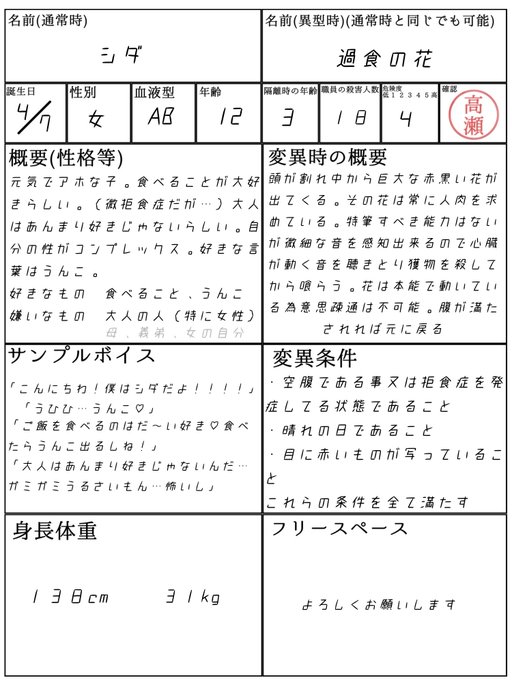 名前(通常時)
シダ
名前(異型時)(通常時と同じでも可能)
過食の花
誕生日
4/7
性別
女
血液型
AB
年齢
12
隔離時の年齢
3
職員の殺害人数
18
危険度
低１２３４５高
4
確認
高瀬
概要(性格等)
元気でアホな子。食べることが大好
きらしい。（微拒食症だが…）大人
はあんまり好きじゃないらしい。自
分の性がコンプレックス。好きな言
葉はうんこ。
好きなもの　食べること、うんこ
嫌いなもの　大人の人（特に女性）
母、義弟、女の自分
変異時の概要
頭が割れ中から巨大な赤黒い花が
出てくる。その花は常に人肉を求
めている。特筆すべき能力はない
が微細な音を感知出来るので心臓
が動く音を聴きとり獲物を殺して
から喰らう。花は本能で動いてい
る為意思疎通は不可能。腹が満た
されれば元に戻る
サンプルボイス
「こんにちわ！僕はシダだよ！！！！」
「うひひ…うんこ♡」
「ご飯を食べるのはだ〜い好き♡食べ
たらうんこ出るしね！」
「大人はあんまり好きじゃないんだ…
ガミガミうるさいもん…怖いし」
変異条件
・空腹である事又は拒食症を発
症してる状態であること
・晴れの日であること
・目に赤いものが写っているこ
と
これらの条件を全て満たす
身長体重
138cm　31kg
フリースペース
よろしくお願いします